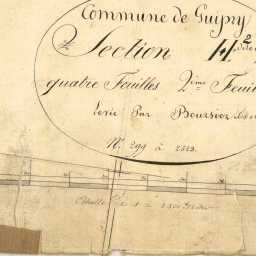 Commune de Guipry
Section H 2
quatre Feuilles 2ème Feuil
Levée Par Boursier
N° 299 à
Echelle de 1 à